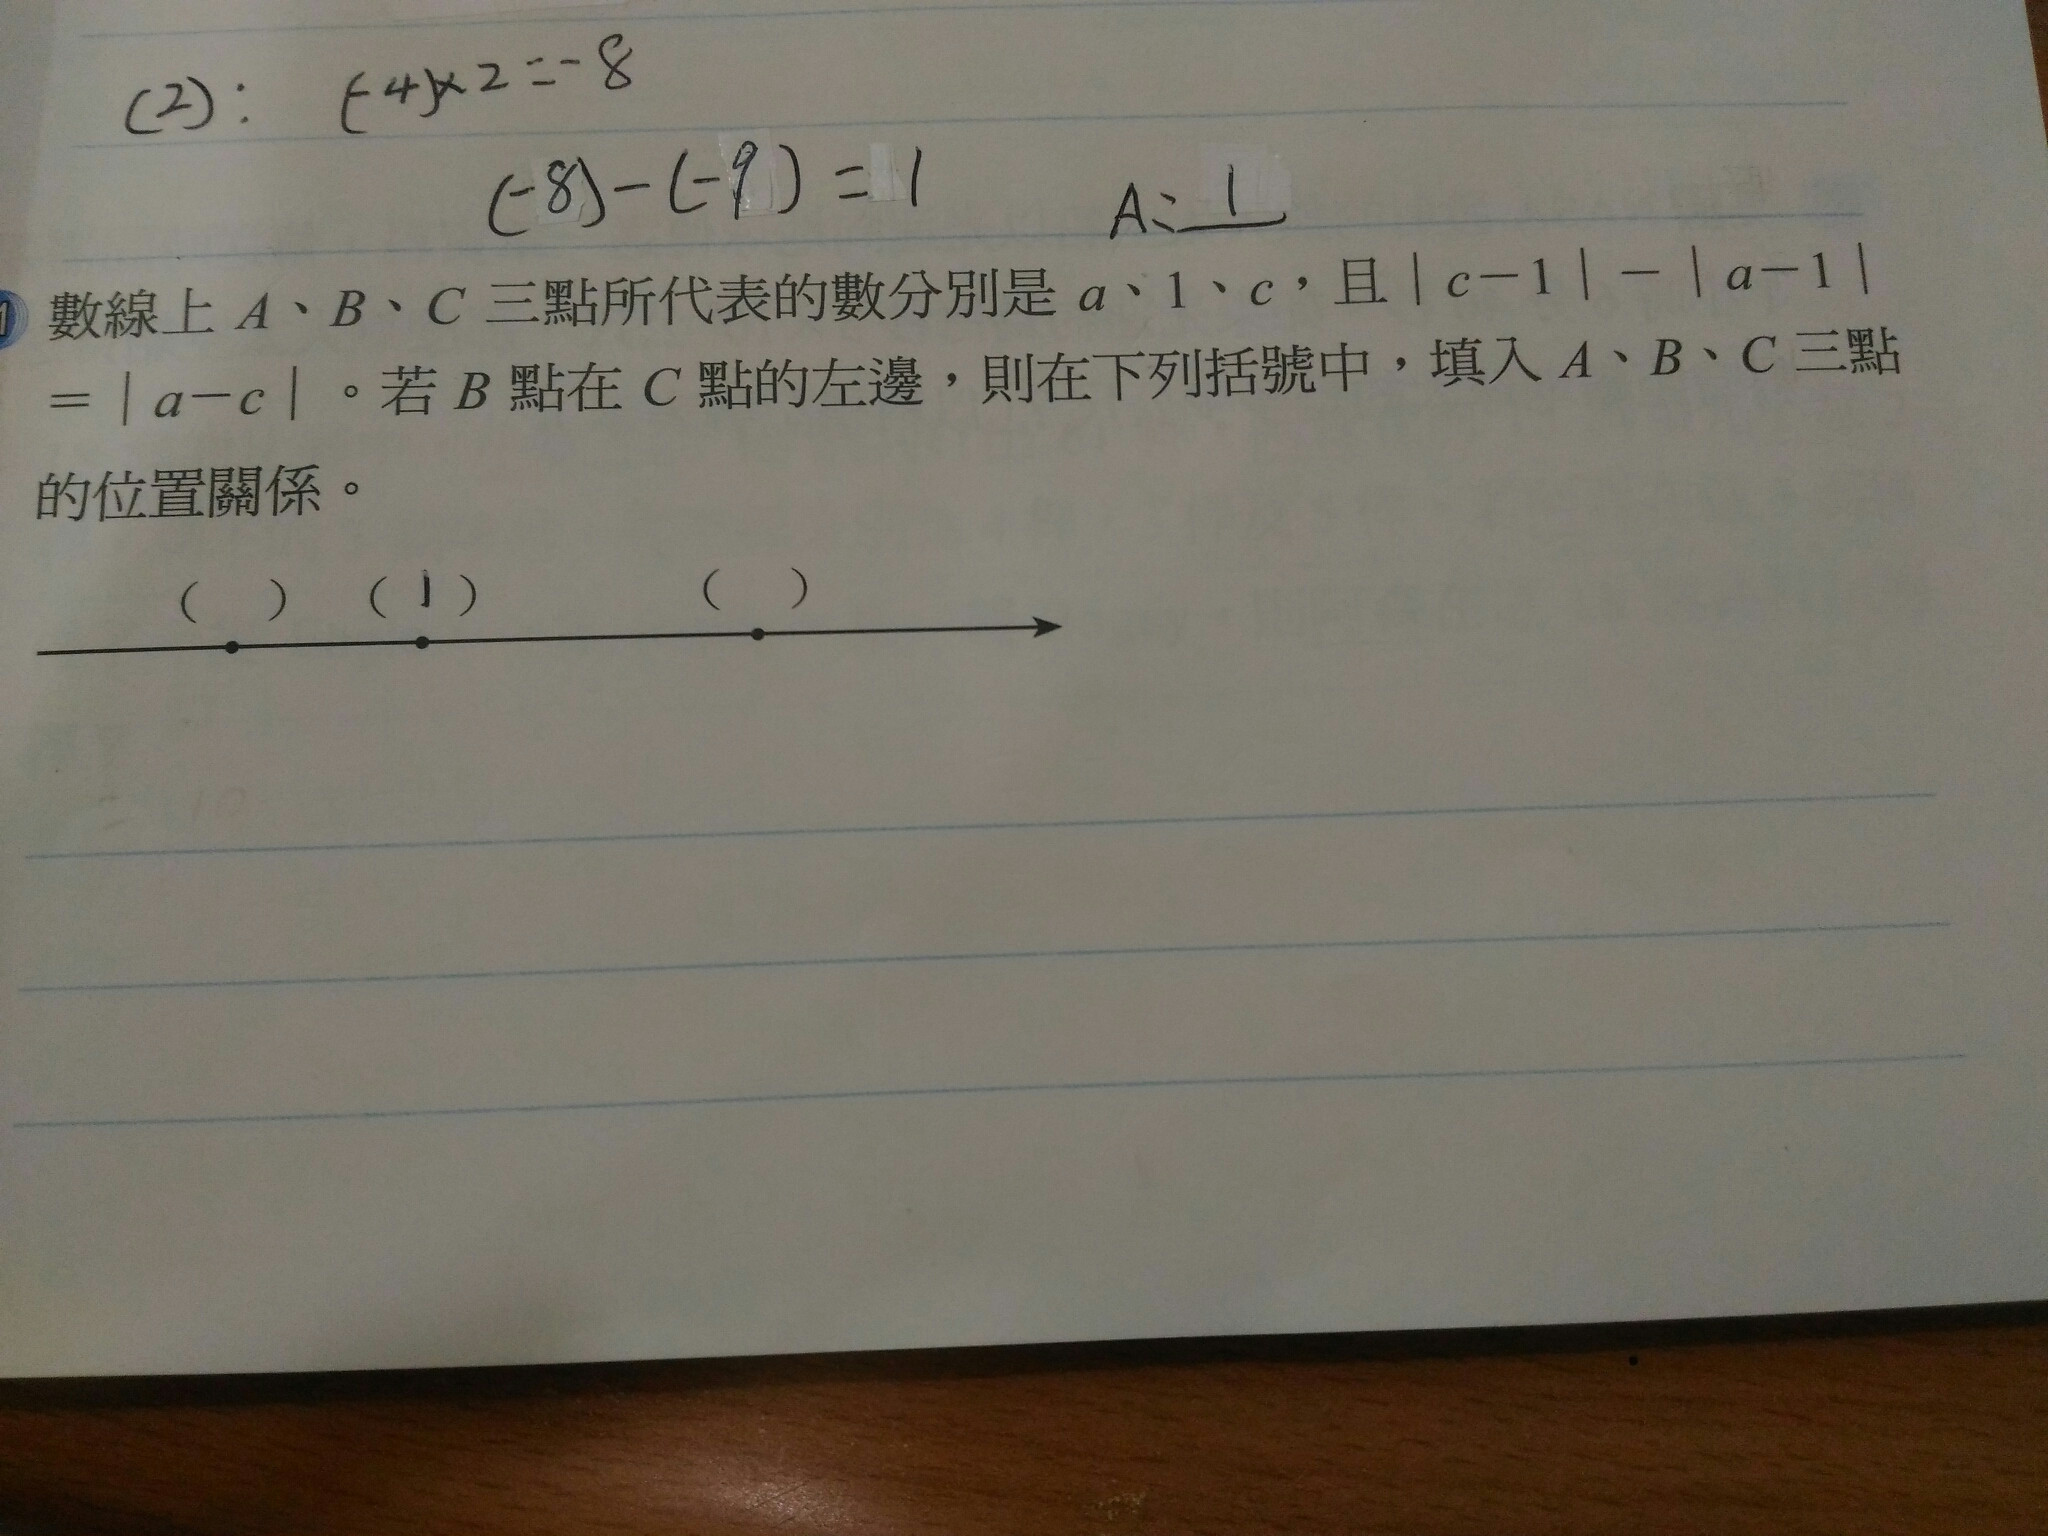 (2): (-4)×2=-8
(-8)-(-9)=1 A:1
1 數線上 A、B、C 三點所代表的數分別是 a、1、c，且｜c－1｜－｜a－1｜
＝｜a－c｜。若 B 點在 C 點的左邊，則在下列括號中，填入 A、B、C 三點
的位置關係。
( ) ( 1 ) ( )